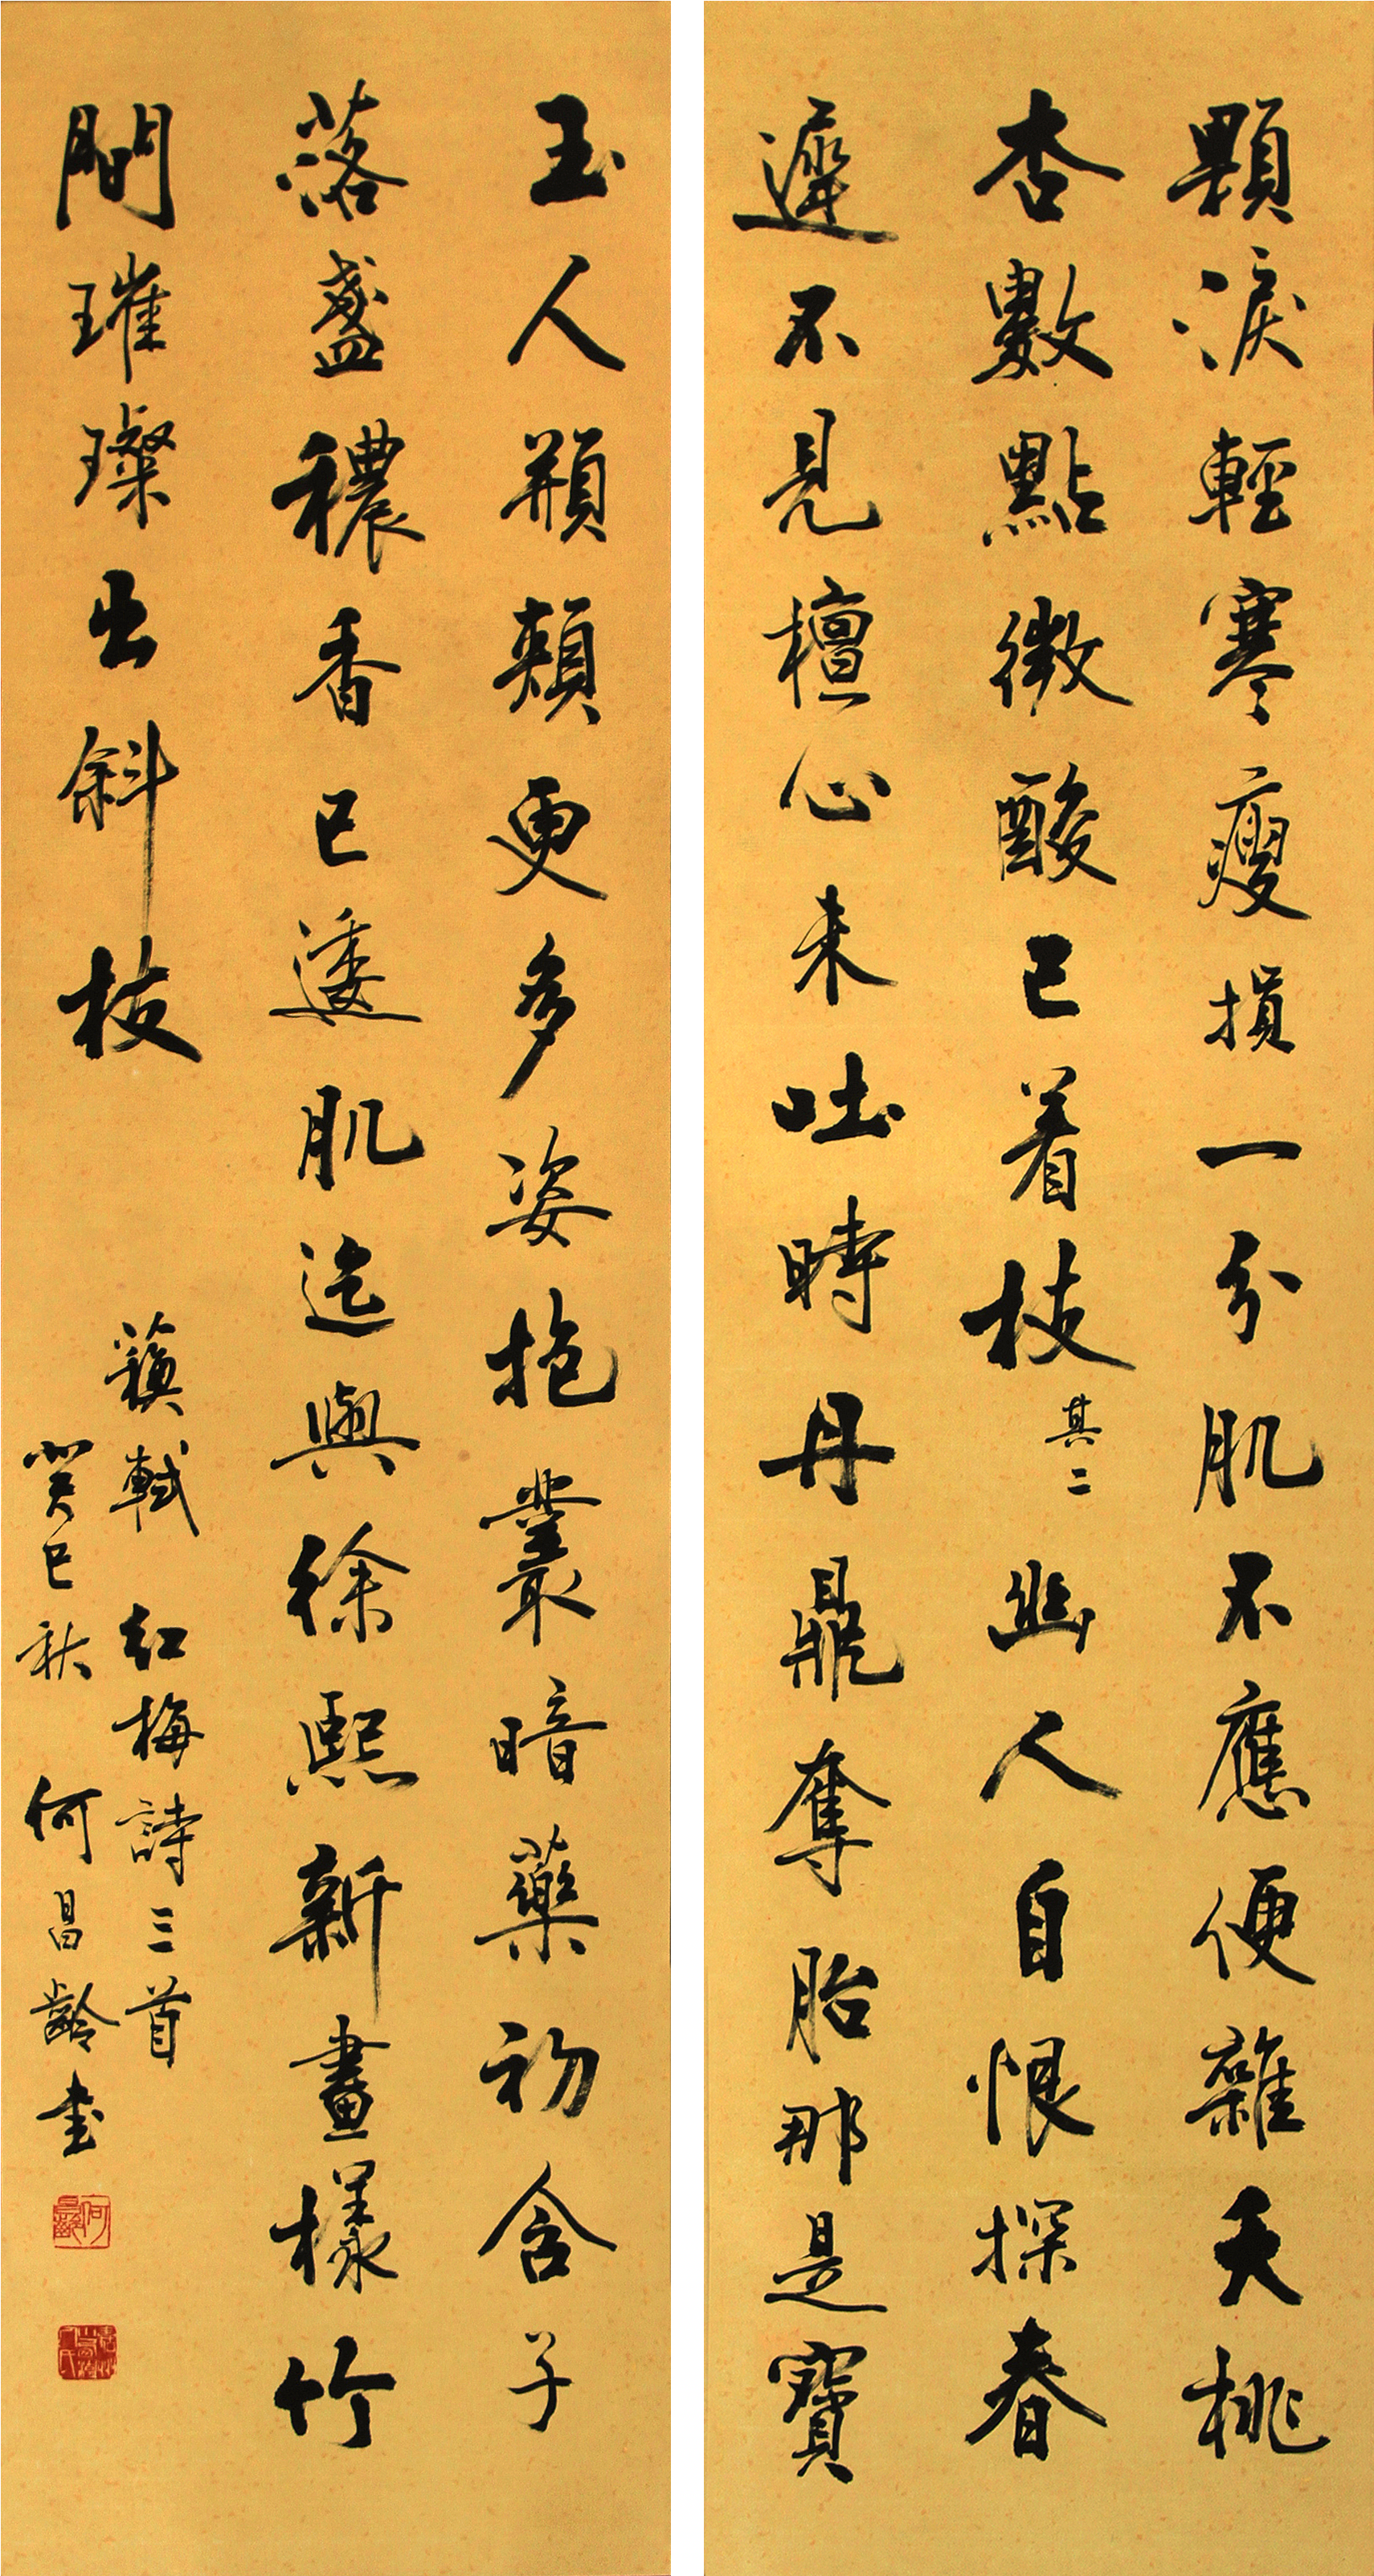 顆淚輕寒瘦損一分肌不應便雜夭桃
杏數點微酸已着枝其二幽人自恨探春
遲不見檀心未吐時丹鼎奪胎那是寶
玉人頩頰更多姿抱叢暗蘂初含子
落盞穠香已透肌迄與徐熙新畫樣竹
間璀璨出斜枝
蘇軾紅梅詩三首
癸巳秋何昌齡書